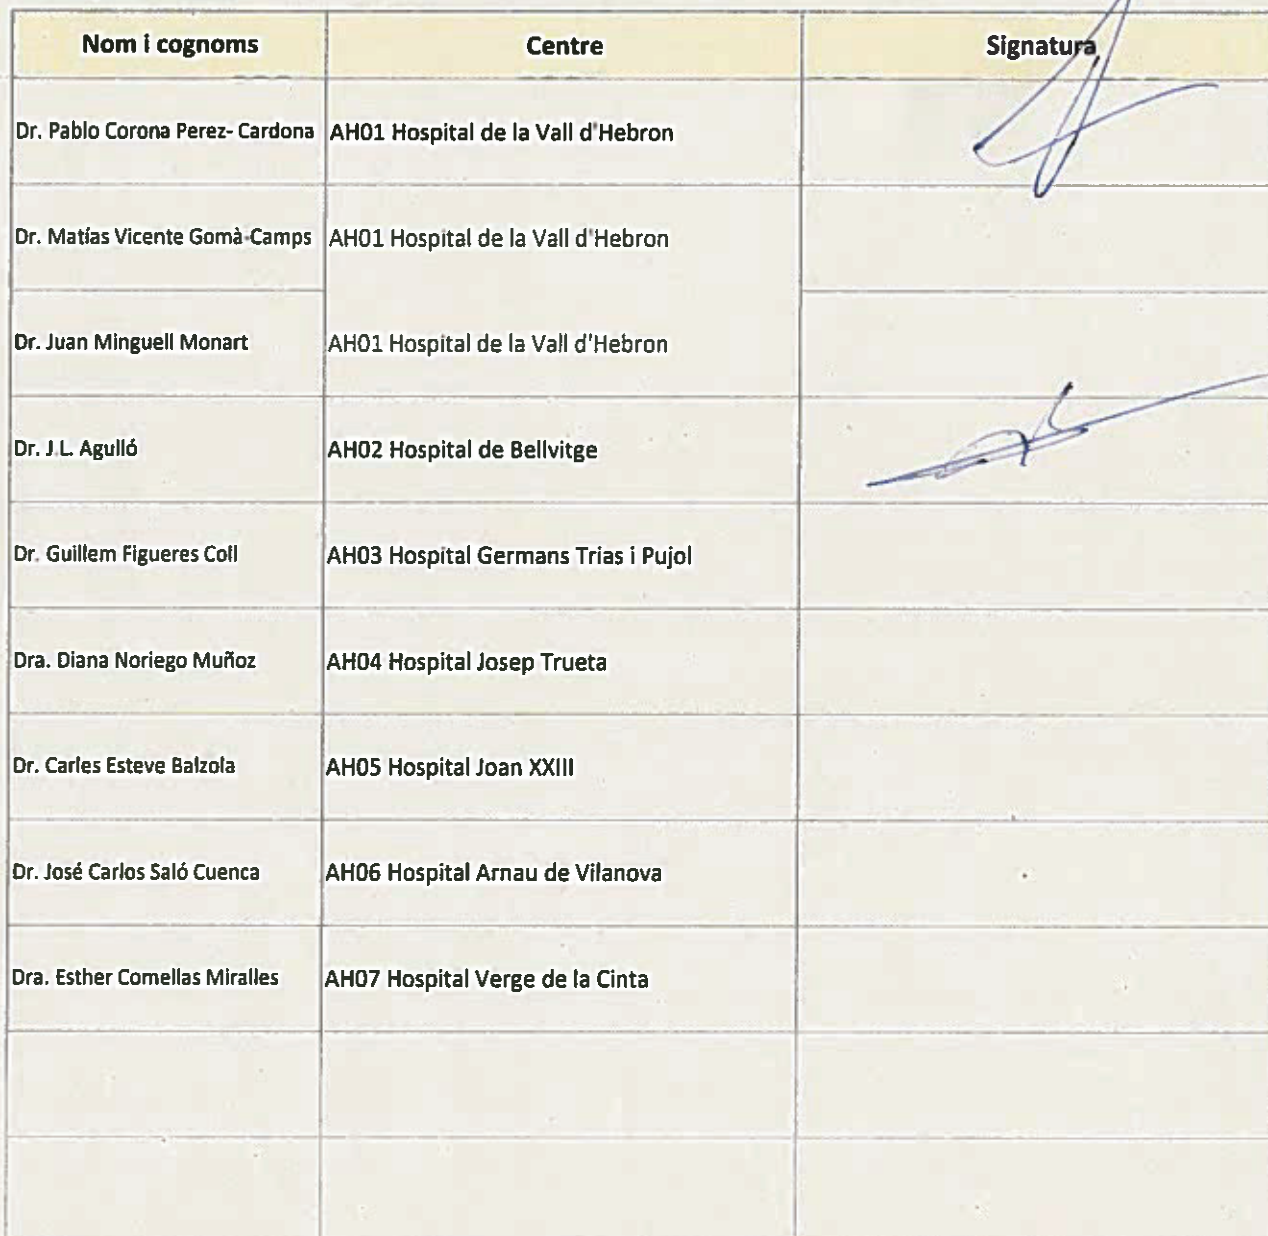 Nom i cognoms Centre Signatura
Dr. Pablo Corona Perez- Cardona AH01 Hospital de la Vall d'Hebron
Dr. Matías Vicente Gomà-Camps AH01 Hospital de la Vall d'Hebron
Dr. Juan Minguell Monart AH01 Hospital de la Vall d'Hebron
Dr. J.L. Agulló AH02 Hospital de Bellvitge
Dr. Guillem Figueres Coll AH03 Hospital Germans Trias i Pujol
Dra. Diana Noriego Muñoz AH04 Hospital Josep Trueta
Dr. Carles Esteve Balzola AH05 Hospital Joan XXIII
Dr. José Carlos Saló Cuenca AH06 Hospital Arnau de Vilanova
Dra. Esther Comellas Miralles AH07 Hospital Verge de la Cinta